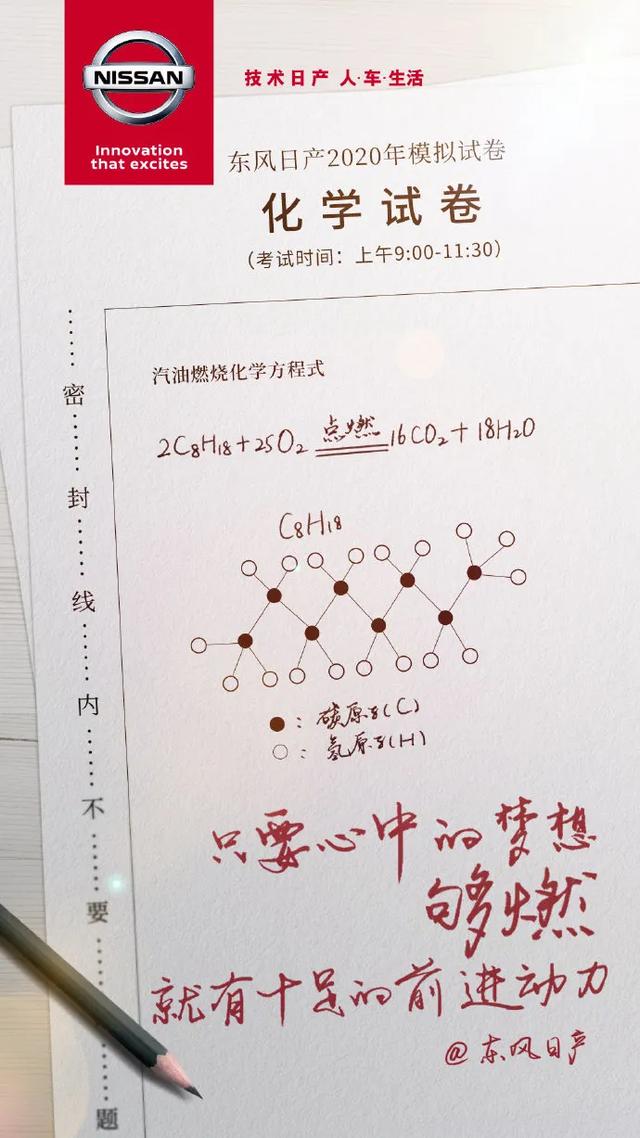 NISSAN
Innovation
that excites
技术日产 人·车·生活
东风日产2020年模拟试卷
化学试卷
（考试时间：上午9:00-11:30）
密封线内不要题
汽油燃烧化学方程式
点燃
2C8H18+25O2══16CO2+18H2O
C8H18
：碳原子(C)
：氢原子(H)
只要心中的梦想
够燃
就有十足的前进动力
@东风日产